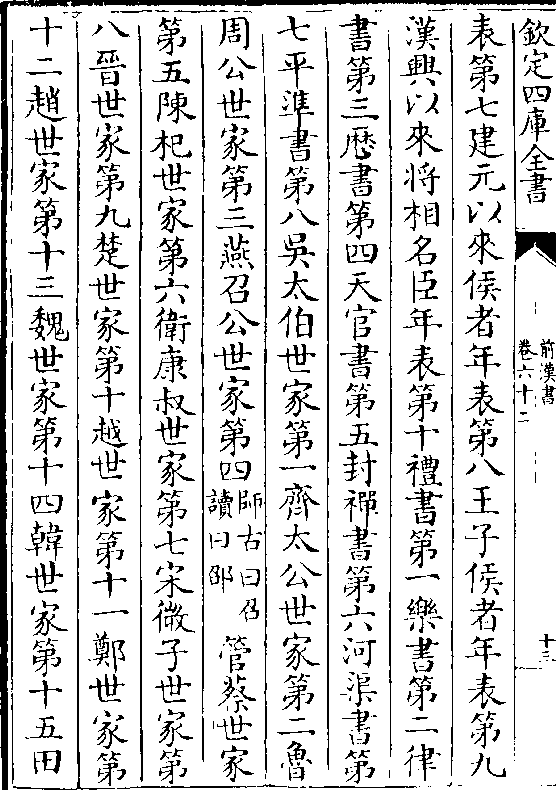 欽定四庫全書
前漢書
卷六十二
十三
表第七建元以來侯者年表第八王子侯者年表第九
漢興以來將相名臣年表第十禮書第一樂書第二律
書第三歷書第四天官書第五封禪書第六河渠書第
七平準書第八吳太伯世家第一齊太公世家第二魯
周公世家第三燕召公世家第四師古曰召讀曰邵管蔡世家
第五陳杞世家第六衛康叔世家第七宋微子世家第
八晉世家第九楚世家第十越世家第十一鄭世家第
十二趙世家第十三魏世家第十四韓世家第十五田